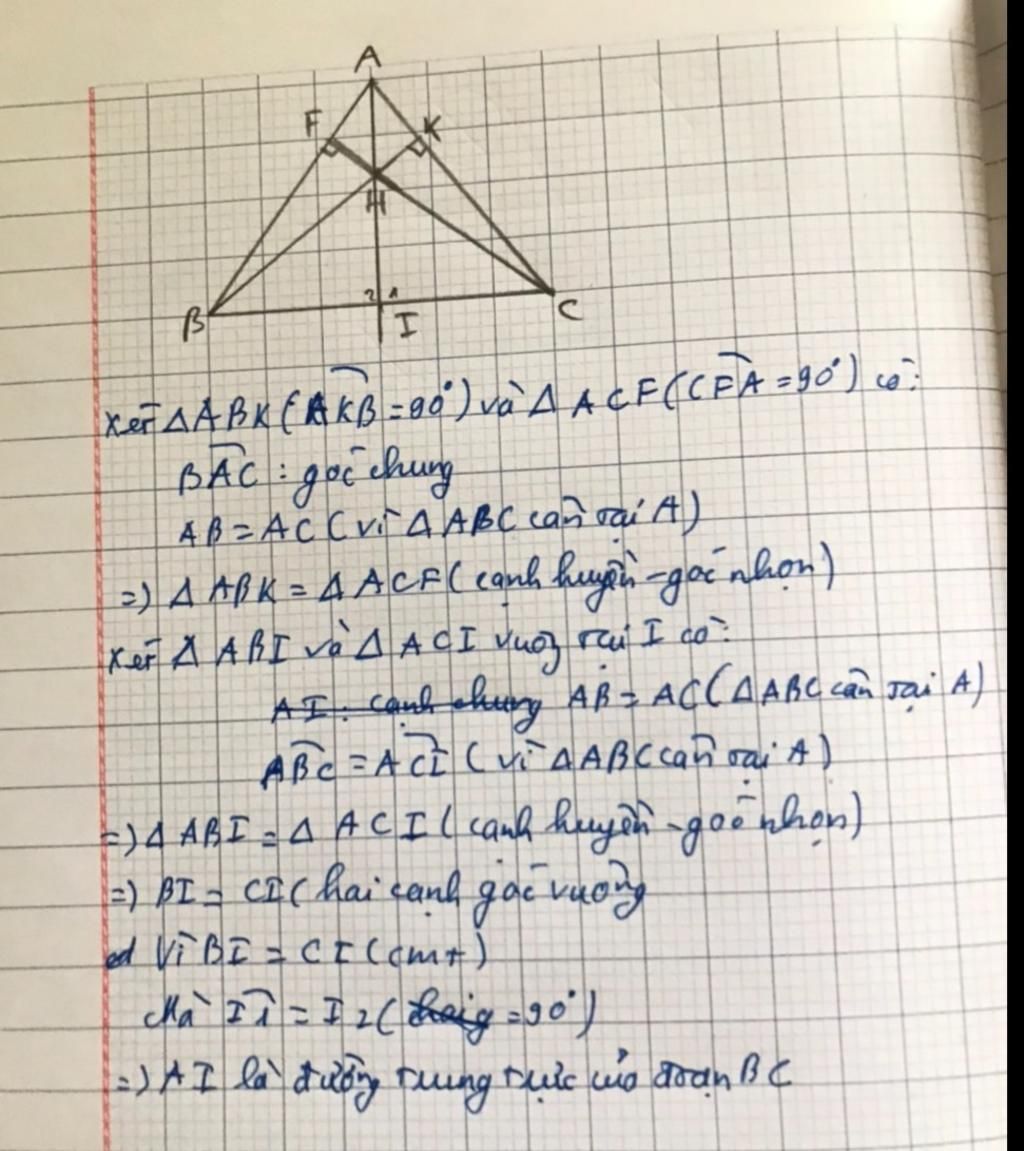 A
F
K
H
2 1
B
I
C
Xét Δ ABK (AKB = 90°) và Δ ACF (CFA = 90°) có:
BAC : góc chung
AB = AC (vì Δ ABC cân tại A)
=) Δ ABK = Δ ACF (cạnh huyền - góc nhọn)
Xét Δ ABI và Δ ACI vuog tại I có:
AI : cạnh chung AB = AC (Δ ABC cân tại A)
ABC = ACI (vì Δ ABC cân tại A)
=) Δ ABI = Δ ACI (cạnh huyền - góc nhọn)
=) BI = CI (hai cạnh góc vuông
Vì BI = CI (cmt)
Mà I1 = I2 ( = 90°)
=) AI là đường trung trực của đoạn BC